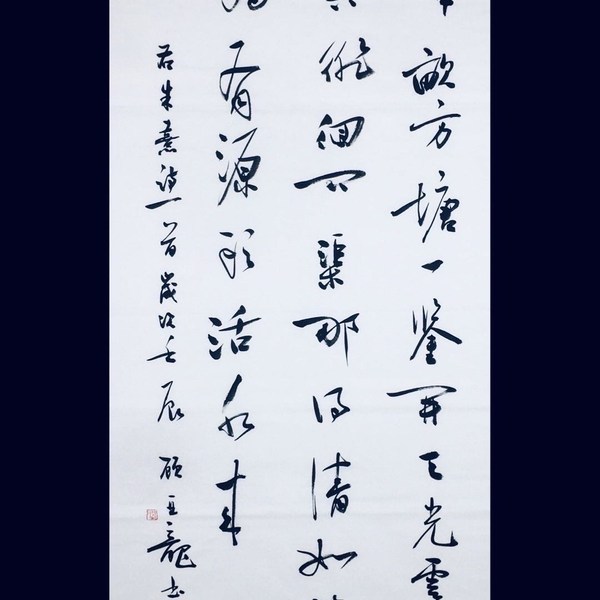 畝方塘一鑒開天光雲
徘徊問渠那得清如
有源頭活水来
右朱熹詩一首歲次壬辰 顧亚龍书